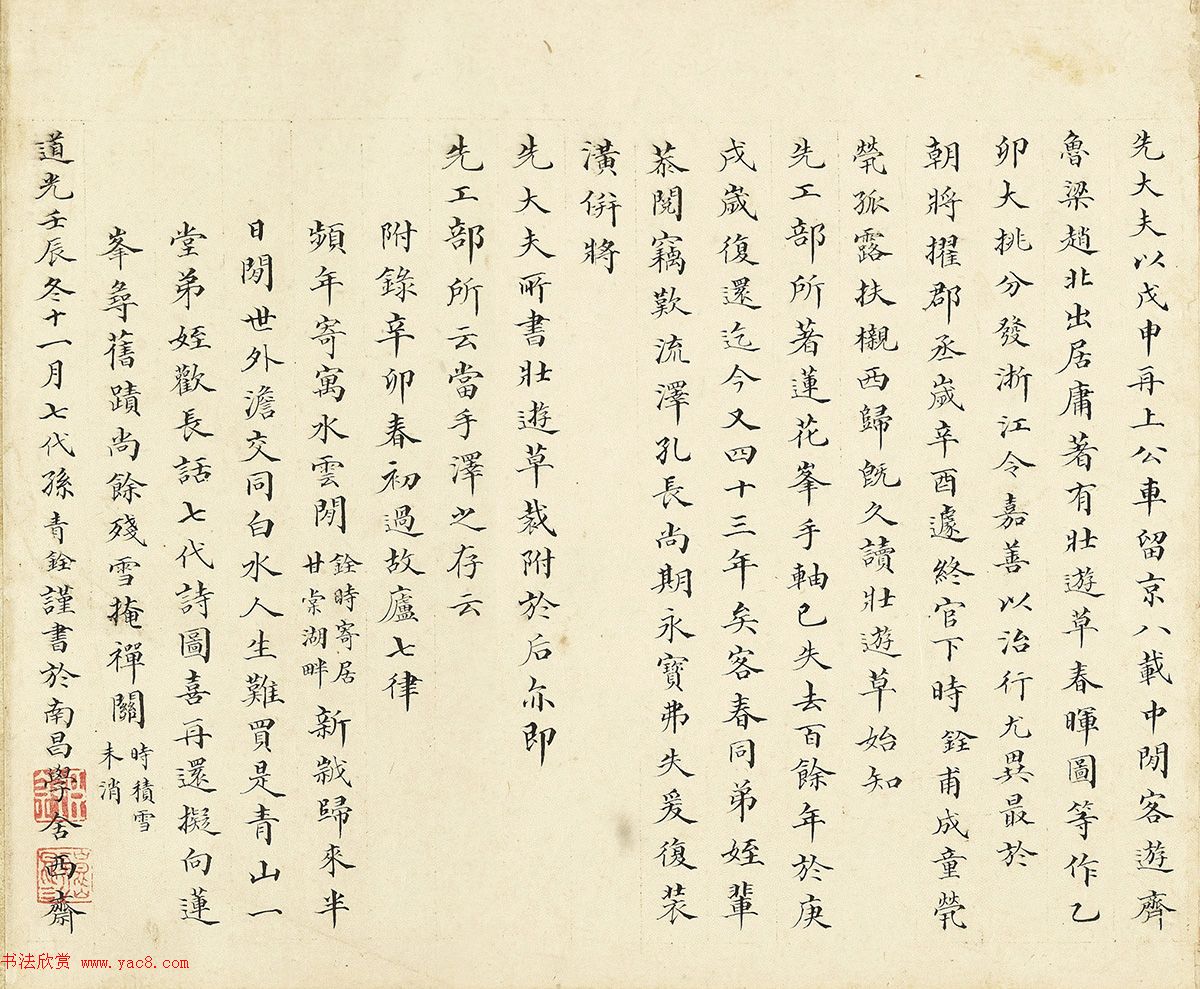 先大夫以戊申再上公車留京八載中間客遊齊
魯梁趙北出居庸著有壯遊草春暉圖等作乙
卯大挑分發浙江令嘉善以治行尤異最於
朝將擢郡丞歲辛酉遽終官下時銓甫成童煢
煢孤露扶櫬西歸旣久讀壯遊草始知
先工部所著蓮花峯手軸已失去百餘年於庚
戌歲復還迄今又四十三年矣客春同弟姪輩
恭閱竊歎流澤孔長尚期永寶弗失爰復装
潢併將
先大夫所書壯遊草裁附於后亦即
先工部所云當手澤之存云
附錄辛卯春初過故廬七律
頻年寄寓水雲閒銓時寄居甘棠湖畔新歲歸來半
日閒世外澹交同白水人生難買是青山一
堂弟姪歡長話七代詩圖喜再還擬向蓮
峯尋舊蹟尚餘殘雪掩禪關時積雪未消
道光壬辰冬十一月七代孫青銓謹書於南昌學舍西齋
书法欣赏 www.yac8.com